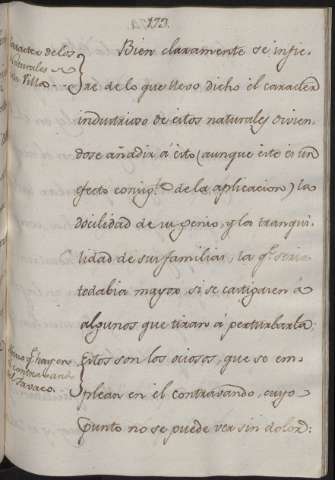 173.
Caracter de los
Naturales
Villa
Bien claramente se infie-
re de lo que llevo dicho el caracter
industrioso de estos naturales devien-
dose añadir á esto (aunque este es un
efecto consigte. de la aplicacion) la
docilidad de su genio, y la tranqui-
lidad de sus familias, la qe. seria
todabia mayor si se castiguen á
algunos que tiran á perturbarla:
qe. hay en
el contravando
del Tavaco.
Estos son los ociosos, que se em-
plean en el contravando, cuyo
punto no se puede ver sin dolor: